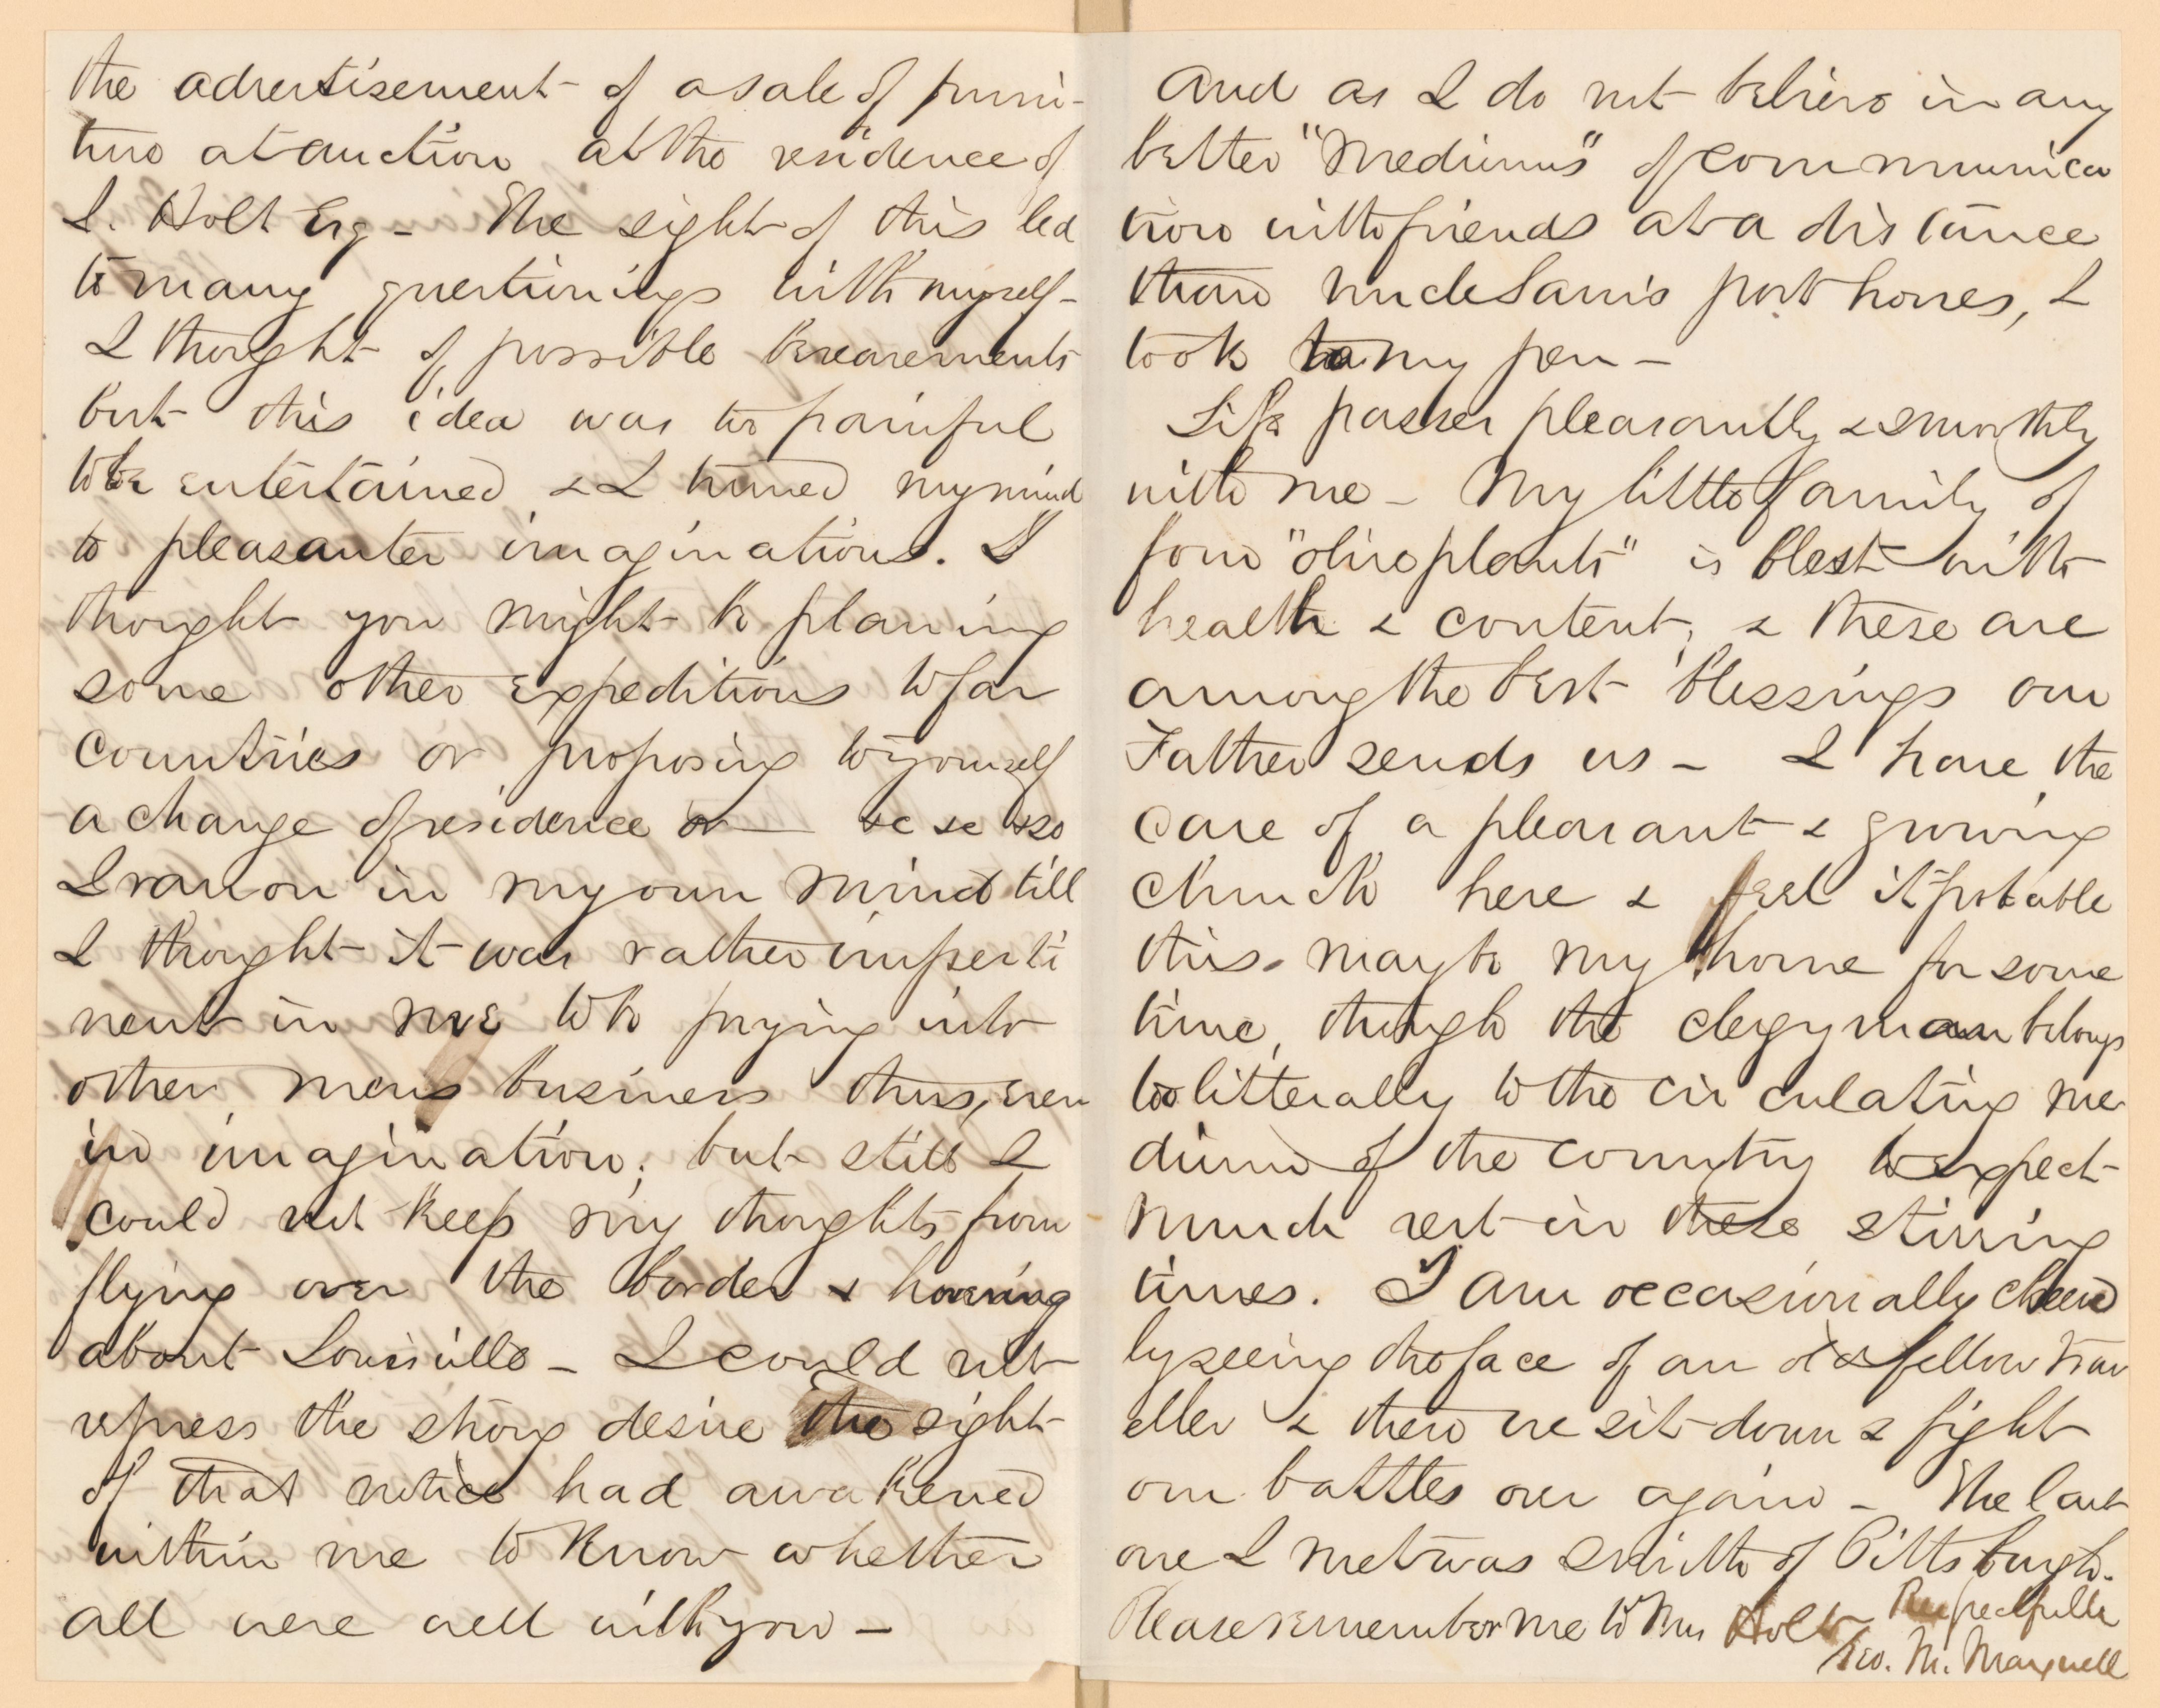 the advertisement of a sale of furni-
ture at auction at the residence of
J. Holt Esq - The sight of this led
to many questionings with myself -
I thought of possible bereavements
but this idea was too painful
to be entertained & I turned my mind
to pleasanter imaginations. I
thought you might be planing
some other expeditions to far
countries or proposing to yourself
a change of residence or — &c &c &so
I ran on in my own mind till
I thought it was rather imperti
nent in me to be prying into
other mens business thus, even
in imagination; but still I
could not keep my thoughts from
flying over the border & hovering
about Louisville - I could not
repress the strong desire the sight
of that notice had awakened
within me to know whether
all were well with you -
And as I do not believe in any
better "Mediums" of communica
tion with friends at a distance
than uncle Sam's post horses, I
took to my pen -
Life passes pleasantly & smoothly
with me - My little family of
four "olive plants" is blest with
health & content, & these are
among the best blessings our
Father sends us - I have the
care of a pleasant & growing
church here & feel it probable
this may be my home for some
time, though the clergyman belongs
too litterally to the circulating me
dium of the country to expect
much rest in these stirring
times. I am occasionally cheered
by seeing the face of an old fellow trav
eller & then we sit down & fight
our battles over again - The last
one I met was Smith of Pittsburgh.
Please remember me to Mrs Holt Respectfully
Geo. M. Maxwell